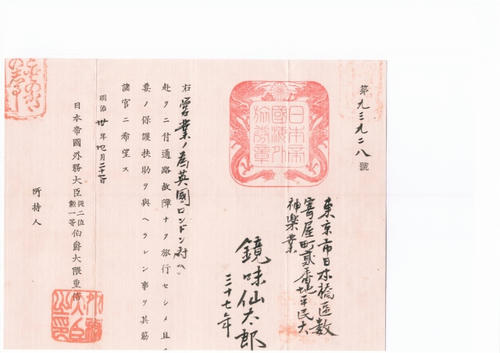 第九三九二八號
日本帝
國海外
旅券章
東京市日本橋區數
寄屋町貳番地平民大
神樂業
鏡味仙太郎
三十七年
右營業ノ為英國ロンドン府ヘ
赴クニ付通路故障ナク旅行セシメ且必
要ノ保護扶助ヲ與ヘラレン事ヲ其筋
諸官ニ希望ス
明治卅年四月
日本帝國外務大臣從二位勳一等伯爵大隈重信
外務
大臣
之印
所持人